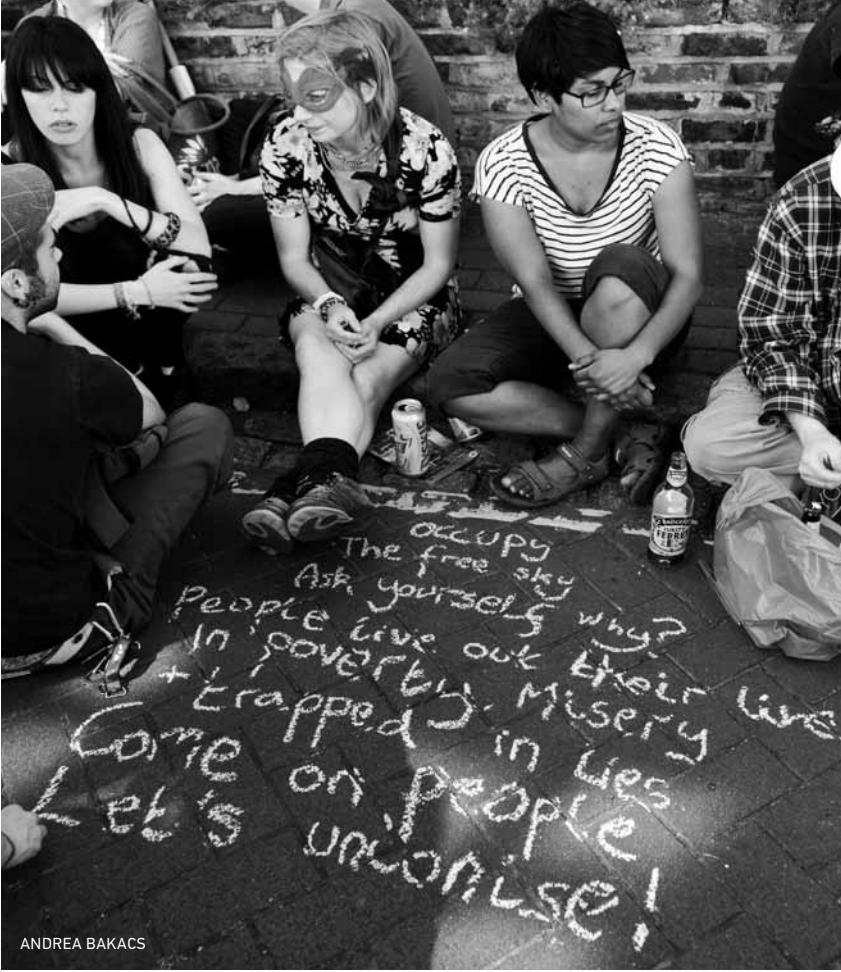 occupy
The free sky
Ask yourself why?
People live out their live
In poverty. Misery
+ trapped in lies
Come on people
Let's unionise!
ANDREA BAKACS